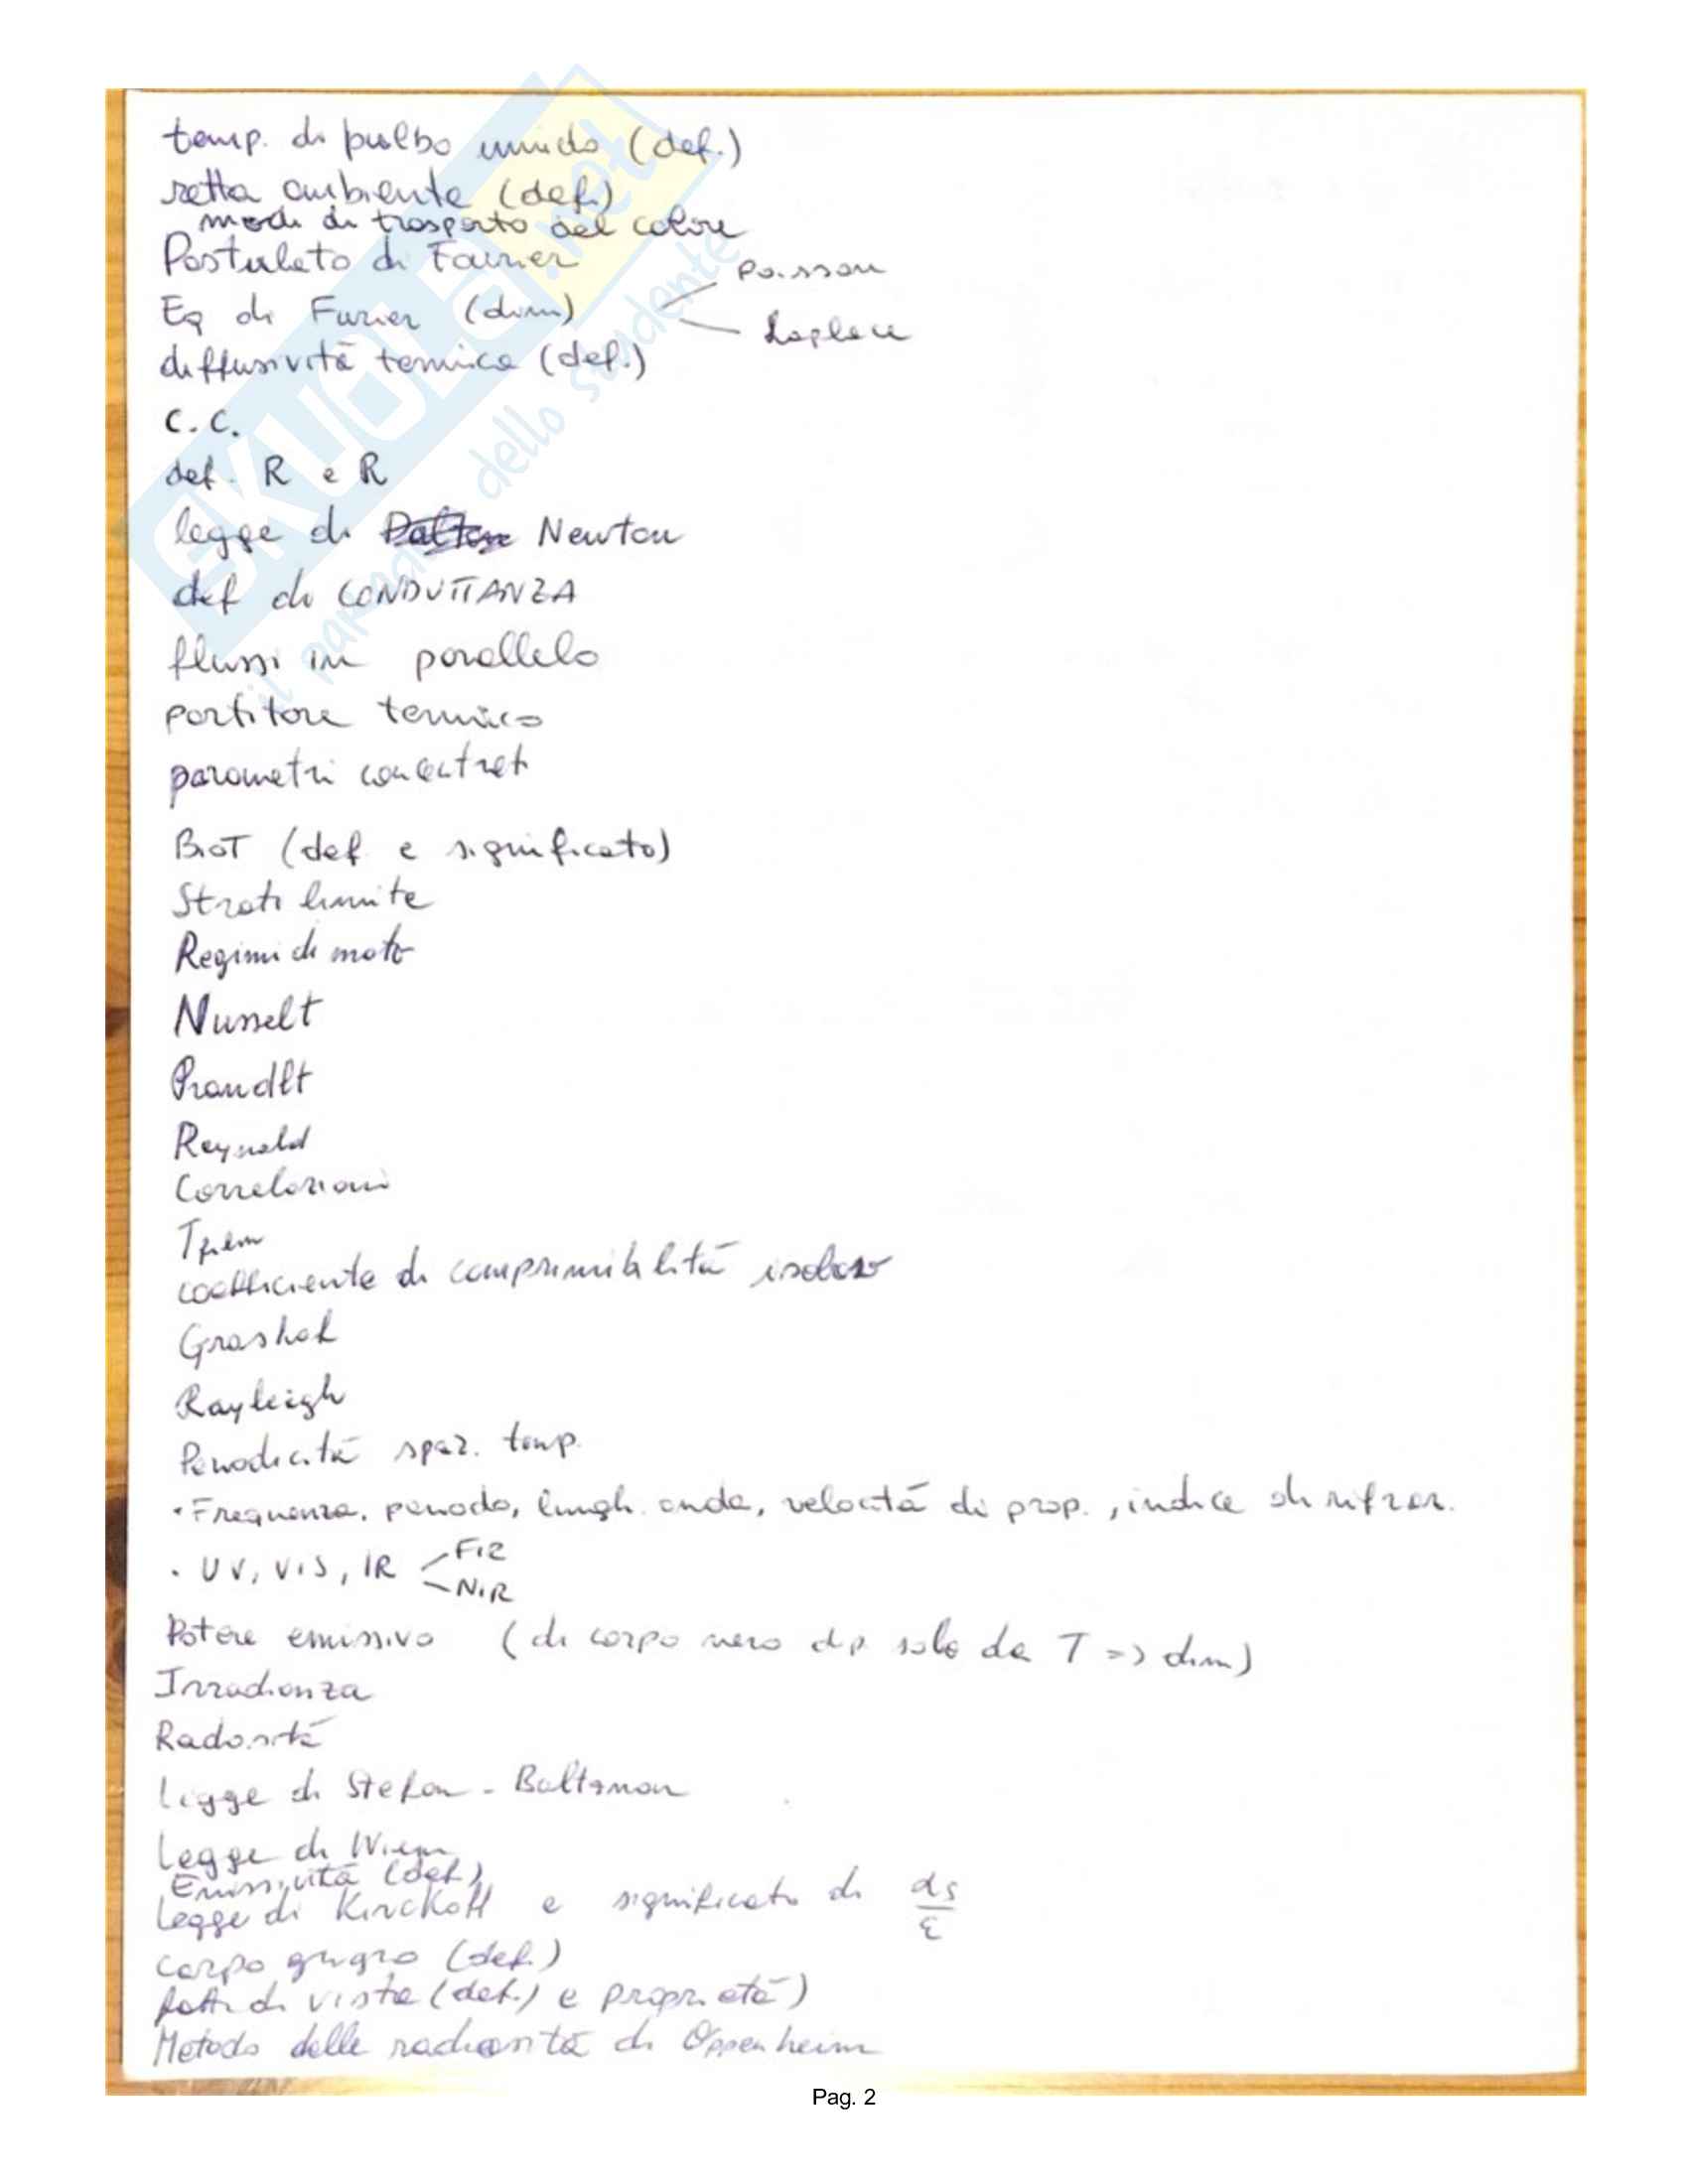 temp. di bulbo umido (def.)
retta ambiente (def.)
modi di trasporto del calore
Postulato di Fourier
Eq di Furier (dim)
Poisson
Laplace
diffusività termica (def.)
C.C.
def. R e R
legge di Newton
def di CONDUTTANZA
flussi in parallelo
partitore termico
parametri concentrati
BioT (def e significato)
Strati limite
Regimi di moto
Nusselt
Prandlt
Reynold
Correlazioni
Tfilm
coefficiente di comprimibilità isobaro
Grashof
Rayleigh
Periodicità spaz. temp.
• Frequenza, periodo, lungh. onda, velocità di prop., indice di rifraz.
• UV, VIS, IR
FIR
NIR
Potere emissivo (di corpo nero dip. solo da T => dim)
Irradianza
Radosità
Legge di Stefan - Boltzman
Legge di Wien
Emissività (def.)
Legge di Kirckoff e significato di αs/ε
corpo grigio (def.)
fatt. di vista (def.) e proprietà)
Metodo delle radiosità di Oppenheim
SKUOLA.net
il paradiso dello studente
Pag. 2